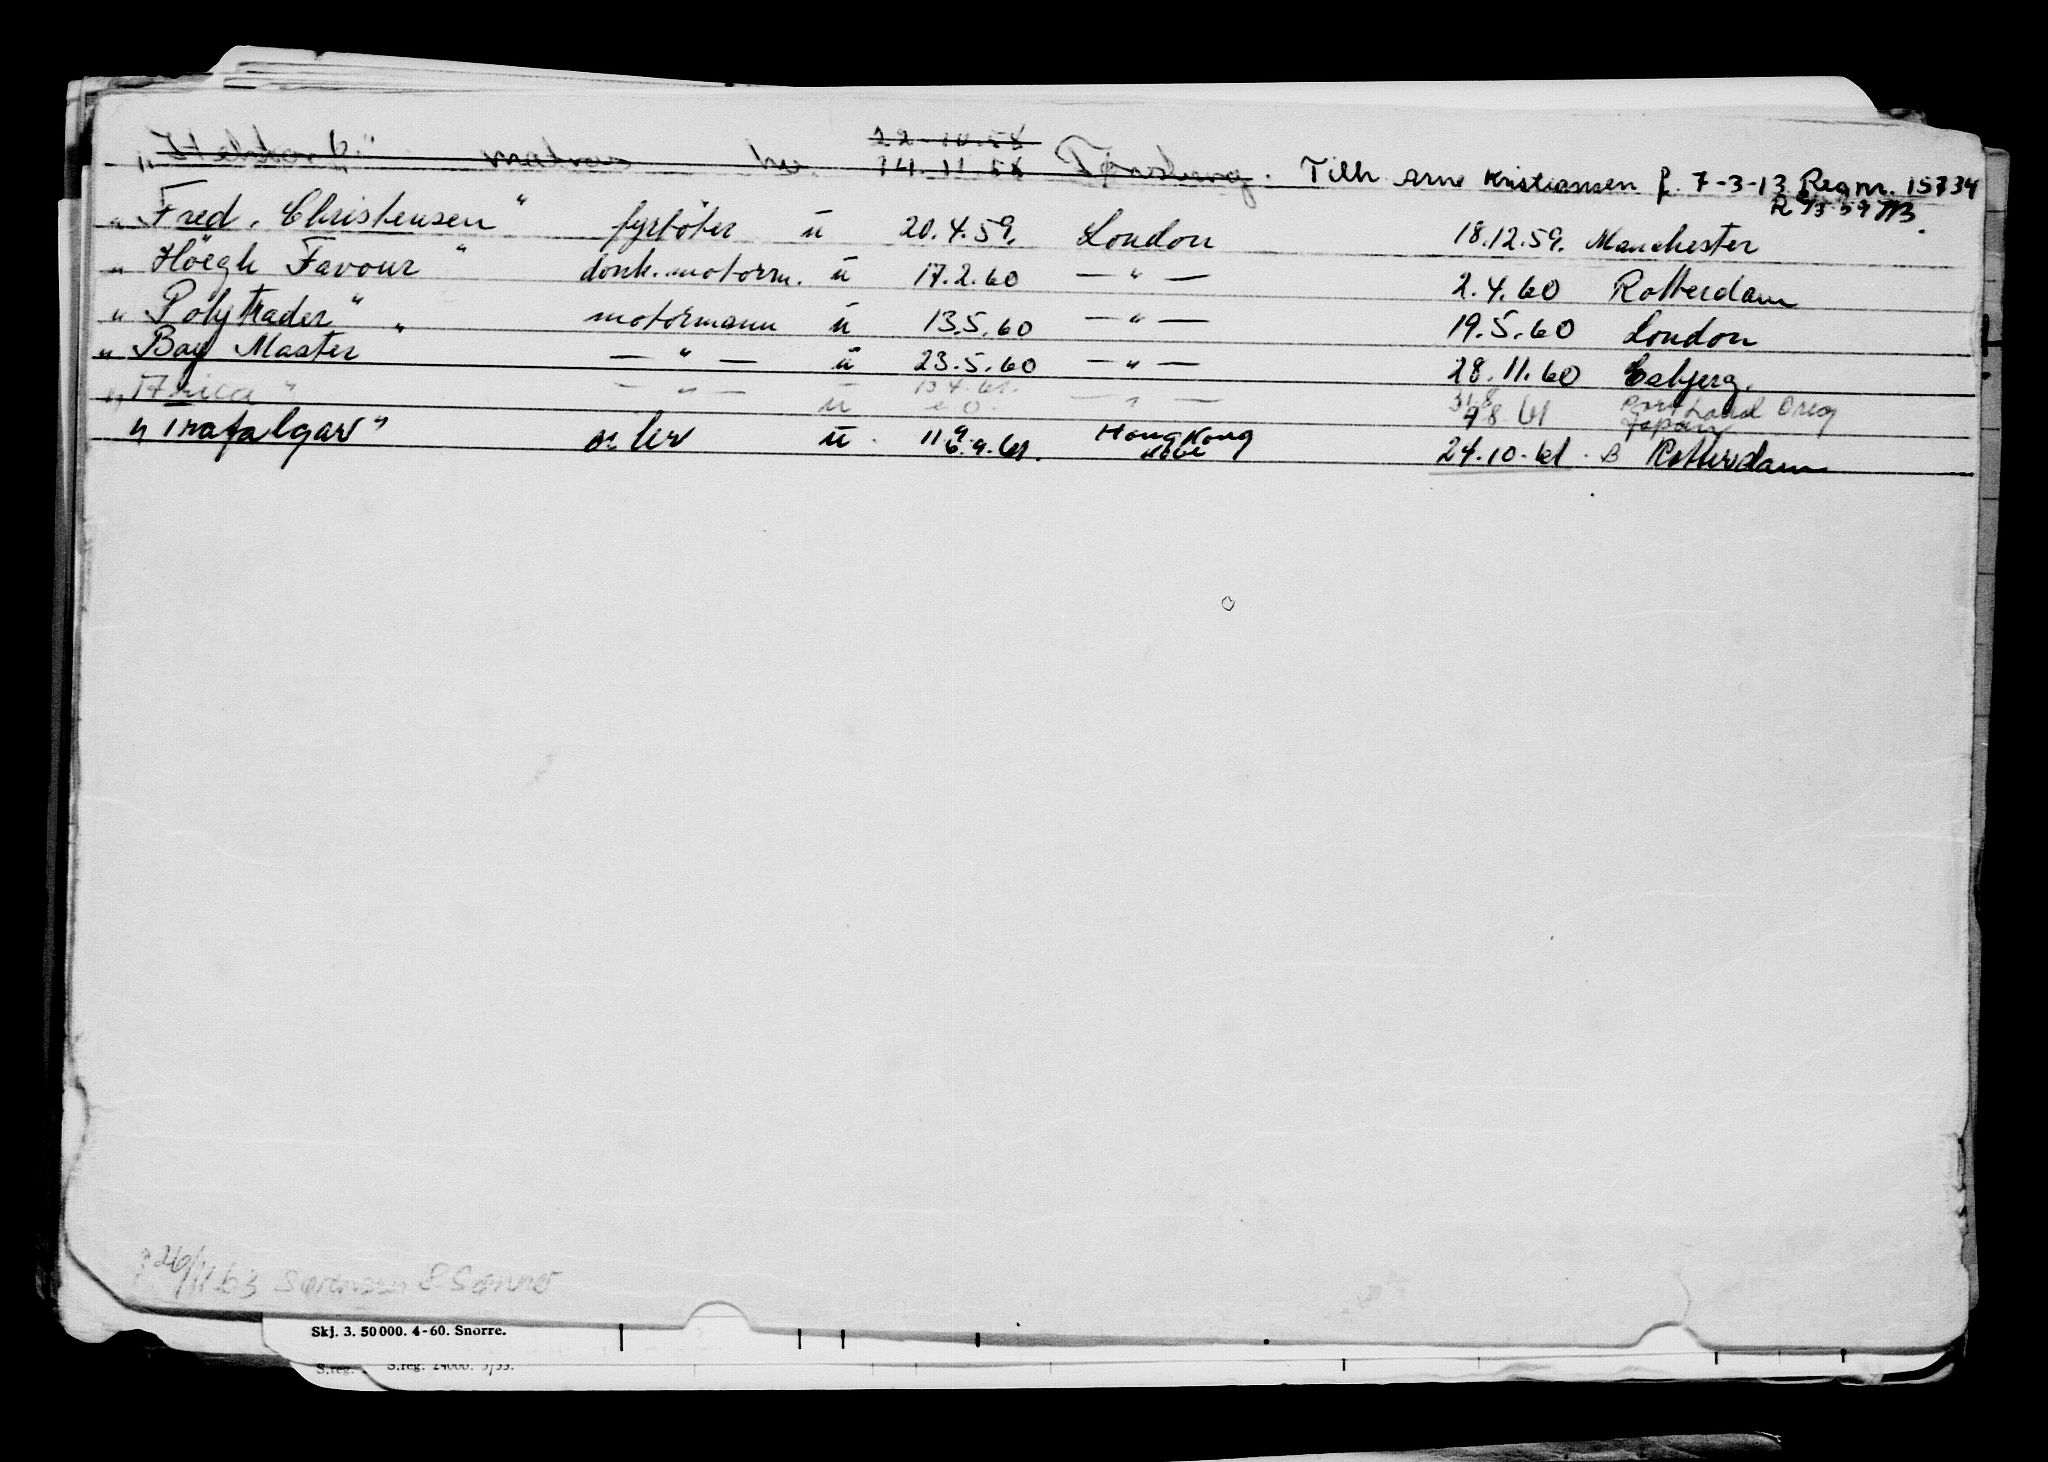 22-10-58
" matros 14.11.58 Tønsberg. Tilh Arne Kristiansen f. 7-3-13 Reg nr. 15734
"Fred. Christensen" fyrböter ü 20.4.59. London 18.12.59. Manchester
"Höegh Favour" donk.motorm. ü 17.2.60 — " — 2.4.60 Rotterdam
"Polytrader" motormann ü 13.5.60 — " — 19.5.60 London
"Bay Master" — " — ü 23.5.60 — " — 28.11.60 Esbjerg.
"Arica" — " — ü 13.4.61. — " — 31.8 Portland Oreg
8.61 Japan
"Trafalgar" ü 11 9 Hong Kong 24.10.61. B Rotterdam
6.9.61. Kobe
26/11 63 Sørensen & Sønner
Skj. 3. 50 000. 4-60. Snorre.
S.reg. S.reg. 24000. 5/55.